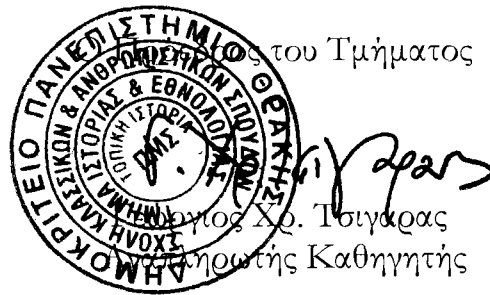 Πρόεδρος του Τμήματος
ΔΗΜΟΚΡΙΤΕΙΟ ΠΑΝΕΠΙΣΤΗΜΙΟ ΘΡΑΚΗΣ
ΣΧΟΛΗ ΚΛΑΣΣΙΚΩΝ & ΑΝΘΡΩΠΙΣΤΙΚΩΝ ΣΠΟΥΔΩΝ
ΤΜΗΜΑ ΙΣΤΟΡΙΑΣ & ΕΘΝΟΛΟΓΙΑΣ
ΤΟΠΙΚΗ ΙΣΤΟΡΙΑ
ΠΜΣ
Γεώργιος Χρ. Τσιγάρας
Αναπληρωτής Καθηγητής